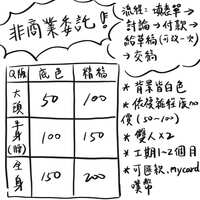 非商業委託!!
流程：填表單→
討論→付款→
給草稿(可改一次)
→交稿
Q版 底色 精稿
大頭 50 100
半身(腰) 100 150
全身 150 200
*背景皆白色
*依複雜程度加價(50~100)
*雙人×2
*工期1~2個月
*可匯款.mycard
噗幣